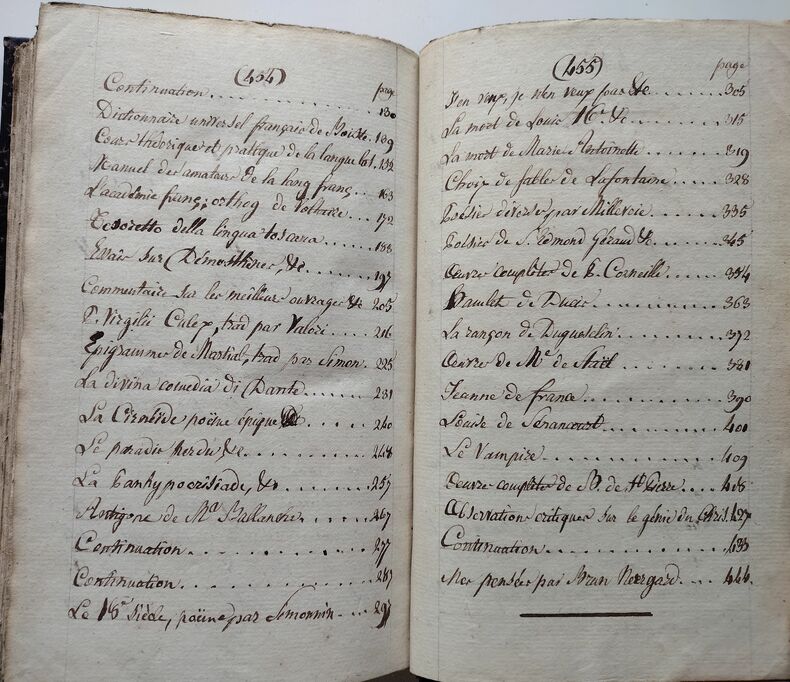 (454)
page
Continuation . . . . 180
Dictionnaire universel français de Boiste . 189
Cours théorique et pratique de la langue lat. 152
Manuel des amateurs de la lang franç . . 163
L'académie franç; orthog de Voltaire . . . . 172
Tesoretto della lingua toscana . . . . 188
Essais sur Démosthènes, &c . . . . 197
Commentaire sur les meilleurs ouvrages &c 205
P. Virgilii Culex, trad par Valori . . . . 216
Epigrammes de Martial, trad par Simon . 225
La divina comedia di Dante . . . . 231
La Cirnéide poëme épique . . . . 240
Le paradis perdu &c . . . . 248
La panhypocrisiade, &c . . . . 257
Antigone de Mr Ballanche . . . . 267
Continuation . . . . 277
Continuation . . . . 287
Le 18e siècle, poëme par Simonnin . . . . 297
(455)
page
J'en veux, je n'en veux pas &c . . . . 305
La mort de Louis 16. &c . . . . 315
La mort de Marie Antoinette . . . . 319
Choix de fables de Lafontaine . . . . 328
Poésies diverses par Millevoie . . . . 335
Poésies de S. Edmond Géraud &c . . . . 345
Œuvres complètes de P. Corneille . . . . 354
Hamlet de Ducis . . . . 363
La rançon de Duguesclin . . . . 372
Œuvres de Me de Staël . . . . 381
Jeanne de france . . . . 390
Louise de Sénancourt . . . . 400
Le Vampire . . . . 409
Œuvres complètes de B. de St Pierre . . . . 418
Observations critiques sur le génie du Chris. 427
Continuation . . . . 435
Mes pensées par Brun Neergard . . . . 444